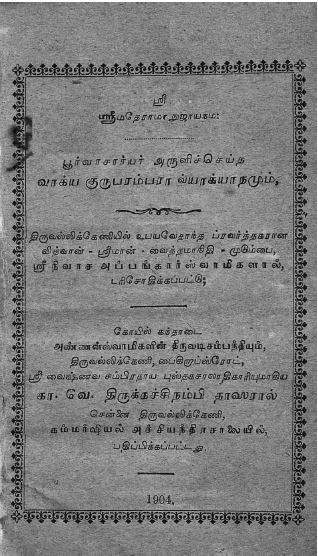 ஸ்ரீ
ஸ்ரீமதேராமாநுஜாயநம:
பூர்வாசார்யர் அருளிச்செய்த
வாக்ய குருபரம்பரா வ்யாக்யாநமும்,
திருவல்லிக்கேணியில் உபயவேதாந்த ப்ரவர்த்தகரான
வித்வான் - ஸ்ரீமான் - வைத்தமாநிதி - முடும்பை,
ஸ்ரீநிவாஸ அப்பங்கார்ஸ்வாமிகளால்,
பரிசோதிக்கப்பட்டு;
கோயில் கந்தாடை
அண்ணன்ஸ்வாமிகளின் திருவடிசம்பந்தியும்,
திருவல்லிக்கேணி, பைகிராப்ஸ்ரோட்,
ஸ்ரீ வைஷ்ணவ சம்பிரதாய புஸ்தகசாலாதிகாரியுமாகிய
கா. வே. திருக்கச்சிநம்பி தாஸரால்
சென்னை திருவல்லிக்கேணி,
கம்மர்ஷியல் அச்சியந்திரசாலையில்,
பதிப்பிக்கப்பட்டது.
1904.